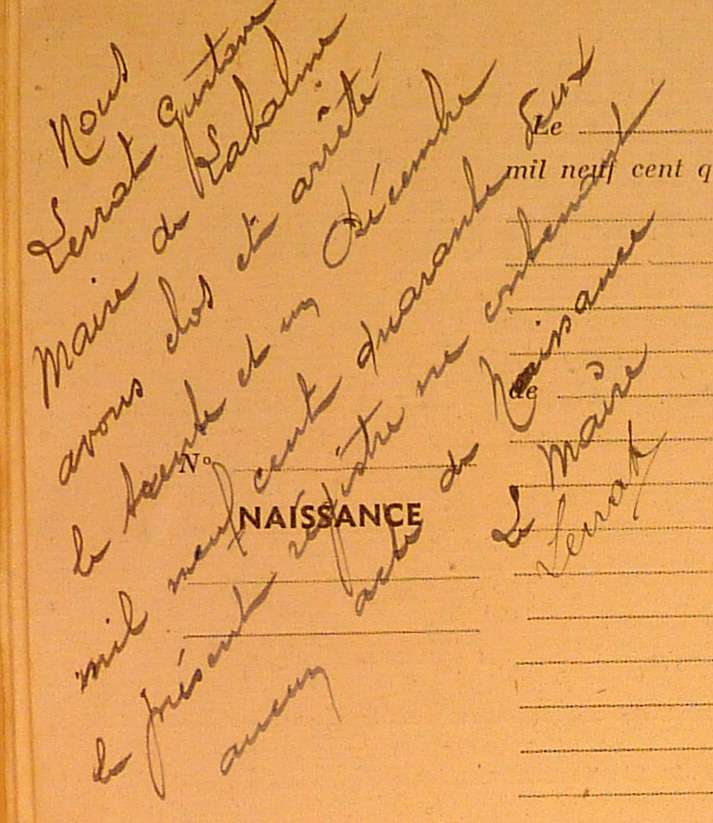 Nous
Serrat Gustave
Maire de Labalme
avons clos et arrêté
le trente et un Décembre
mil neuf cent quarante deux
le présent régistre ne contenant
aucun acte de Naissance
Le Maire
Serrat
Nº
NAISSANCE
Le
mil neuf cent q
de